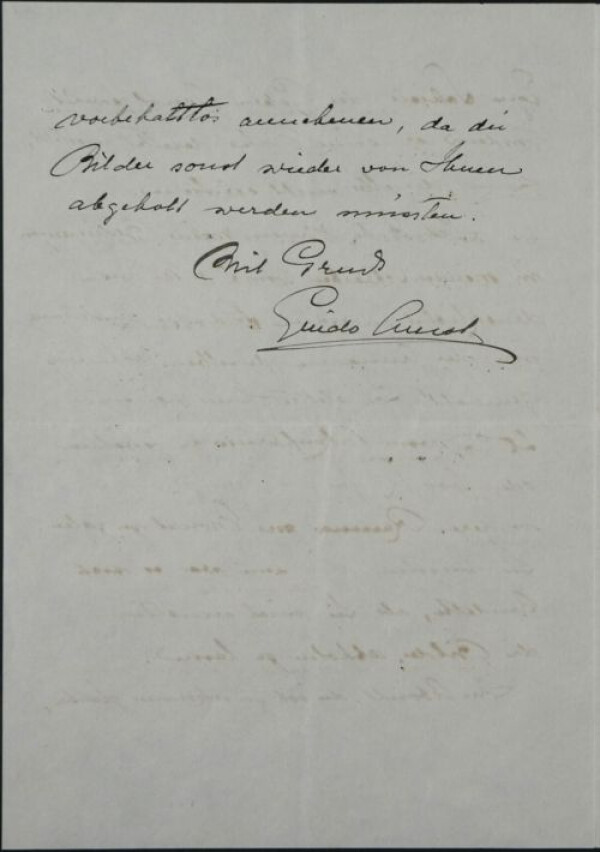 vorbehaltlos annehmen, da die
Bilder sonst wieder von Ihnen
abgeholt werden müssten.
Mit Gruss
Guido Arnot